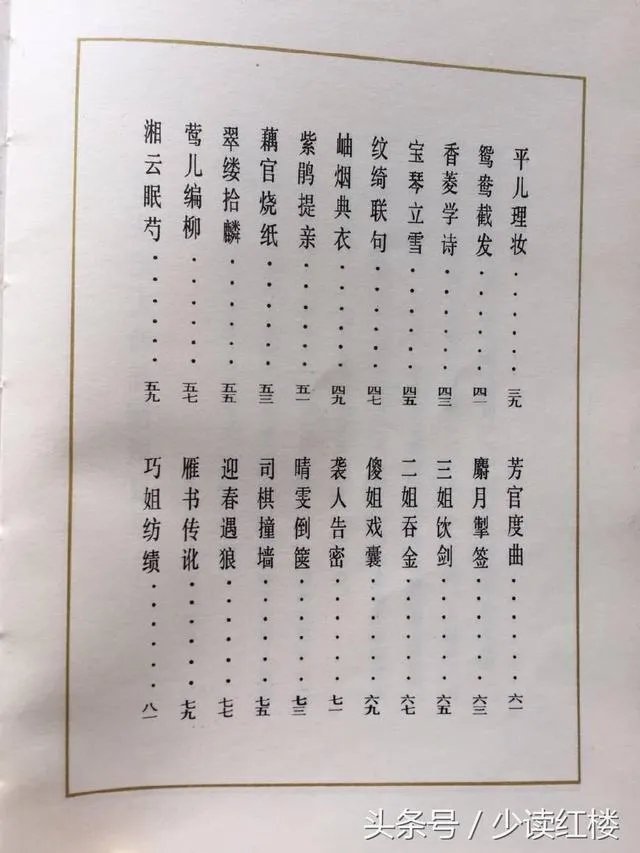 平儿理妆······三九
鸳鸯截发······四一
香菱学诗······四三
宝琴立雪······四五
纹绮联句······四七
岫烟典衣······四九
紫鹃提亲······五一
藕官烧纸······五三
翠缕拾麟······五五
莺儿编柳······五七
湘云眠芍······五九
芳官度曲······六一
麝月掣签······六三
三姐饮剑······六五
二姐吞金······六七
傻姐戏囊······六九
袭人告密······七一
晴雯倒箧······七三
司棋撞墙······七五
迎春遇狼······七七
雁书传讹······七九
巧姐纺绩······八一
头条号 / 少读红楼